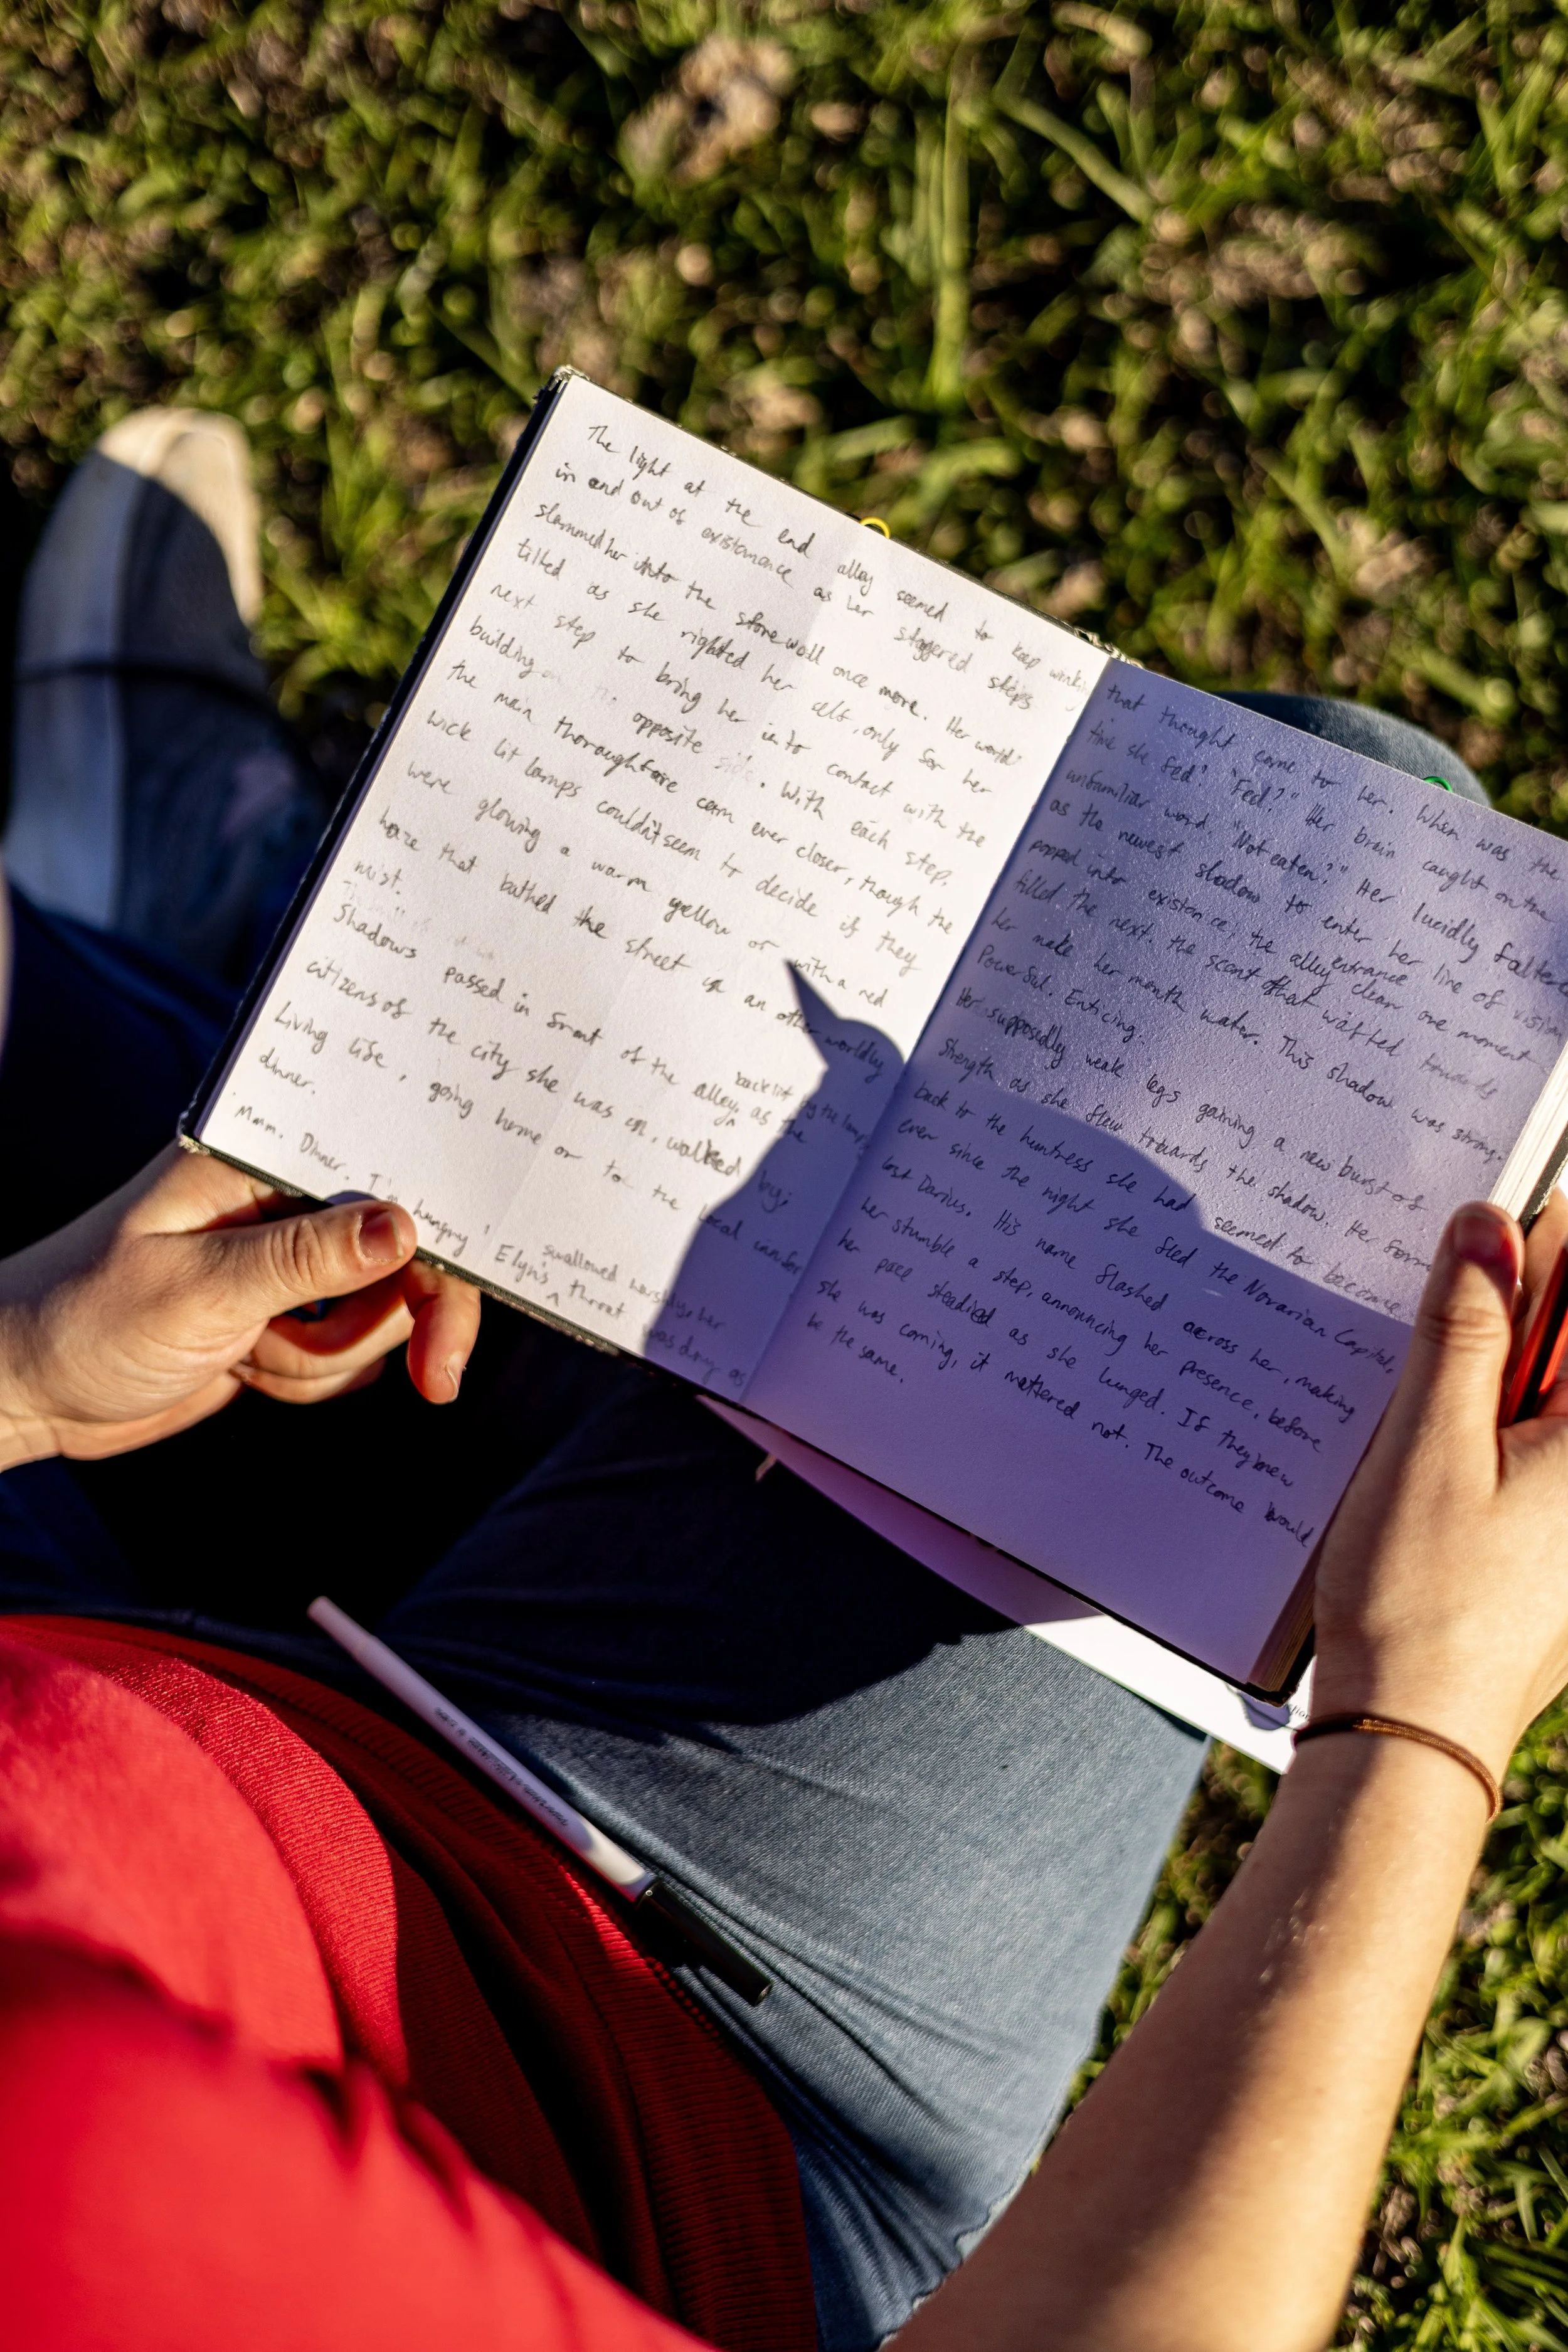 The light at the end alley seemed to keep
in and out of existamance as her staggered steps
slammed her into the stone wall once more. Her world
tilted as she righted her self, only for her
next step to bring her in to contact with the
building on opposite side. With each step,
the main thoroughfare cam ever closer, though the
wick lit lamps couldn't seem to decide if they
were glowing a warm yellow or with a red
haze that bathed the street in an other worldly
mist.
Shadows passed in front of the alley, backlit by the lamps as the
citizens of the city she was in, walked by,
Living life, going home or to the local inn for
dinner.
'Mmm. Dinner. I'm hungry'
Elyn's swallowed harshly, her throat was dry as
that thought came to her. When was the
time she fed? "Fed?" Her brain caught on the
unfamiliar word. "Not eaten?" Her lucidly falte
as the newest shadow to enter her line of visi
popped into existence, the alley entrance clear one moment
filled the next. the scent that wafted towards
her make her mouth water. This shadow was strong.
Powerful. Enticing.
Her supposedly weak legs gaining a new burst of
strength as she flew towards the shadow. Her form
back to the huntress she had seemed to become
ever since the night she fled the Novarian Capital,
lost Darius. His name flashed across her, making
her stumble a step, announcing her presence, before
her pace steadied as she lunged. If they knew
she was coming, it mattered not. The outcome would
be the same.